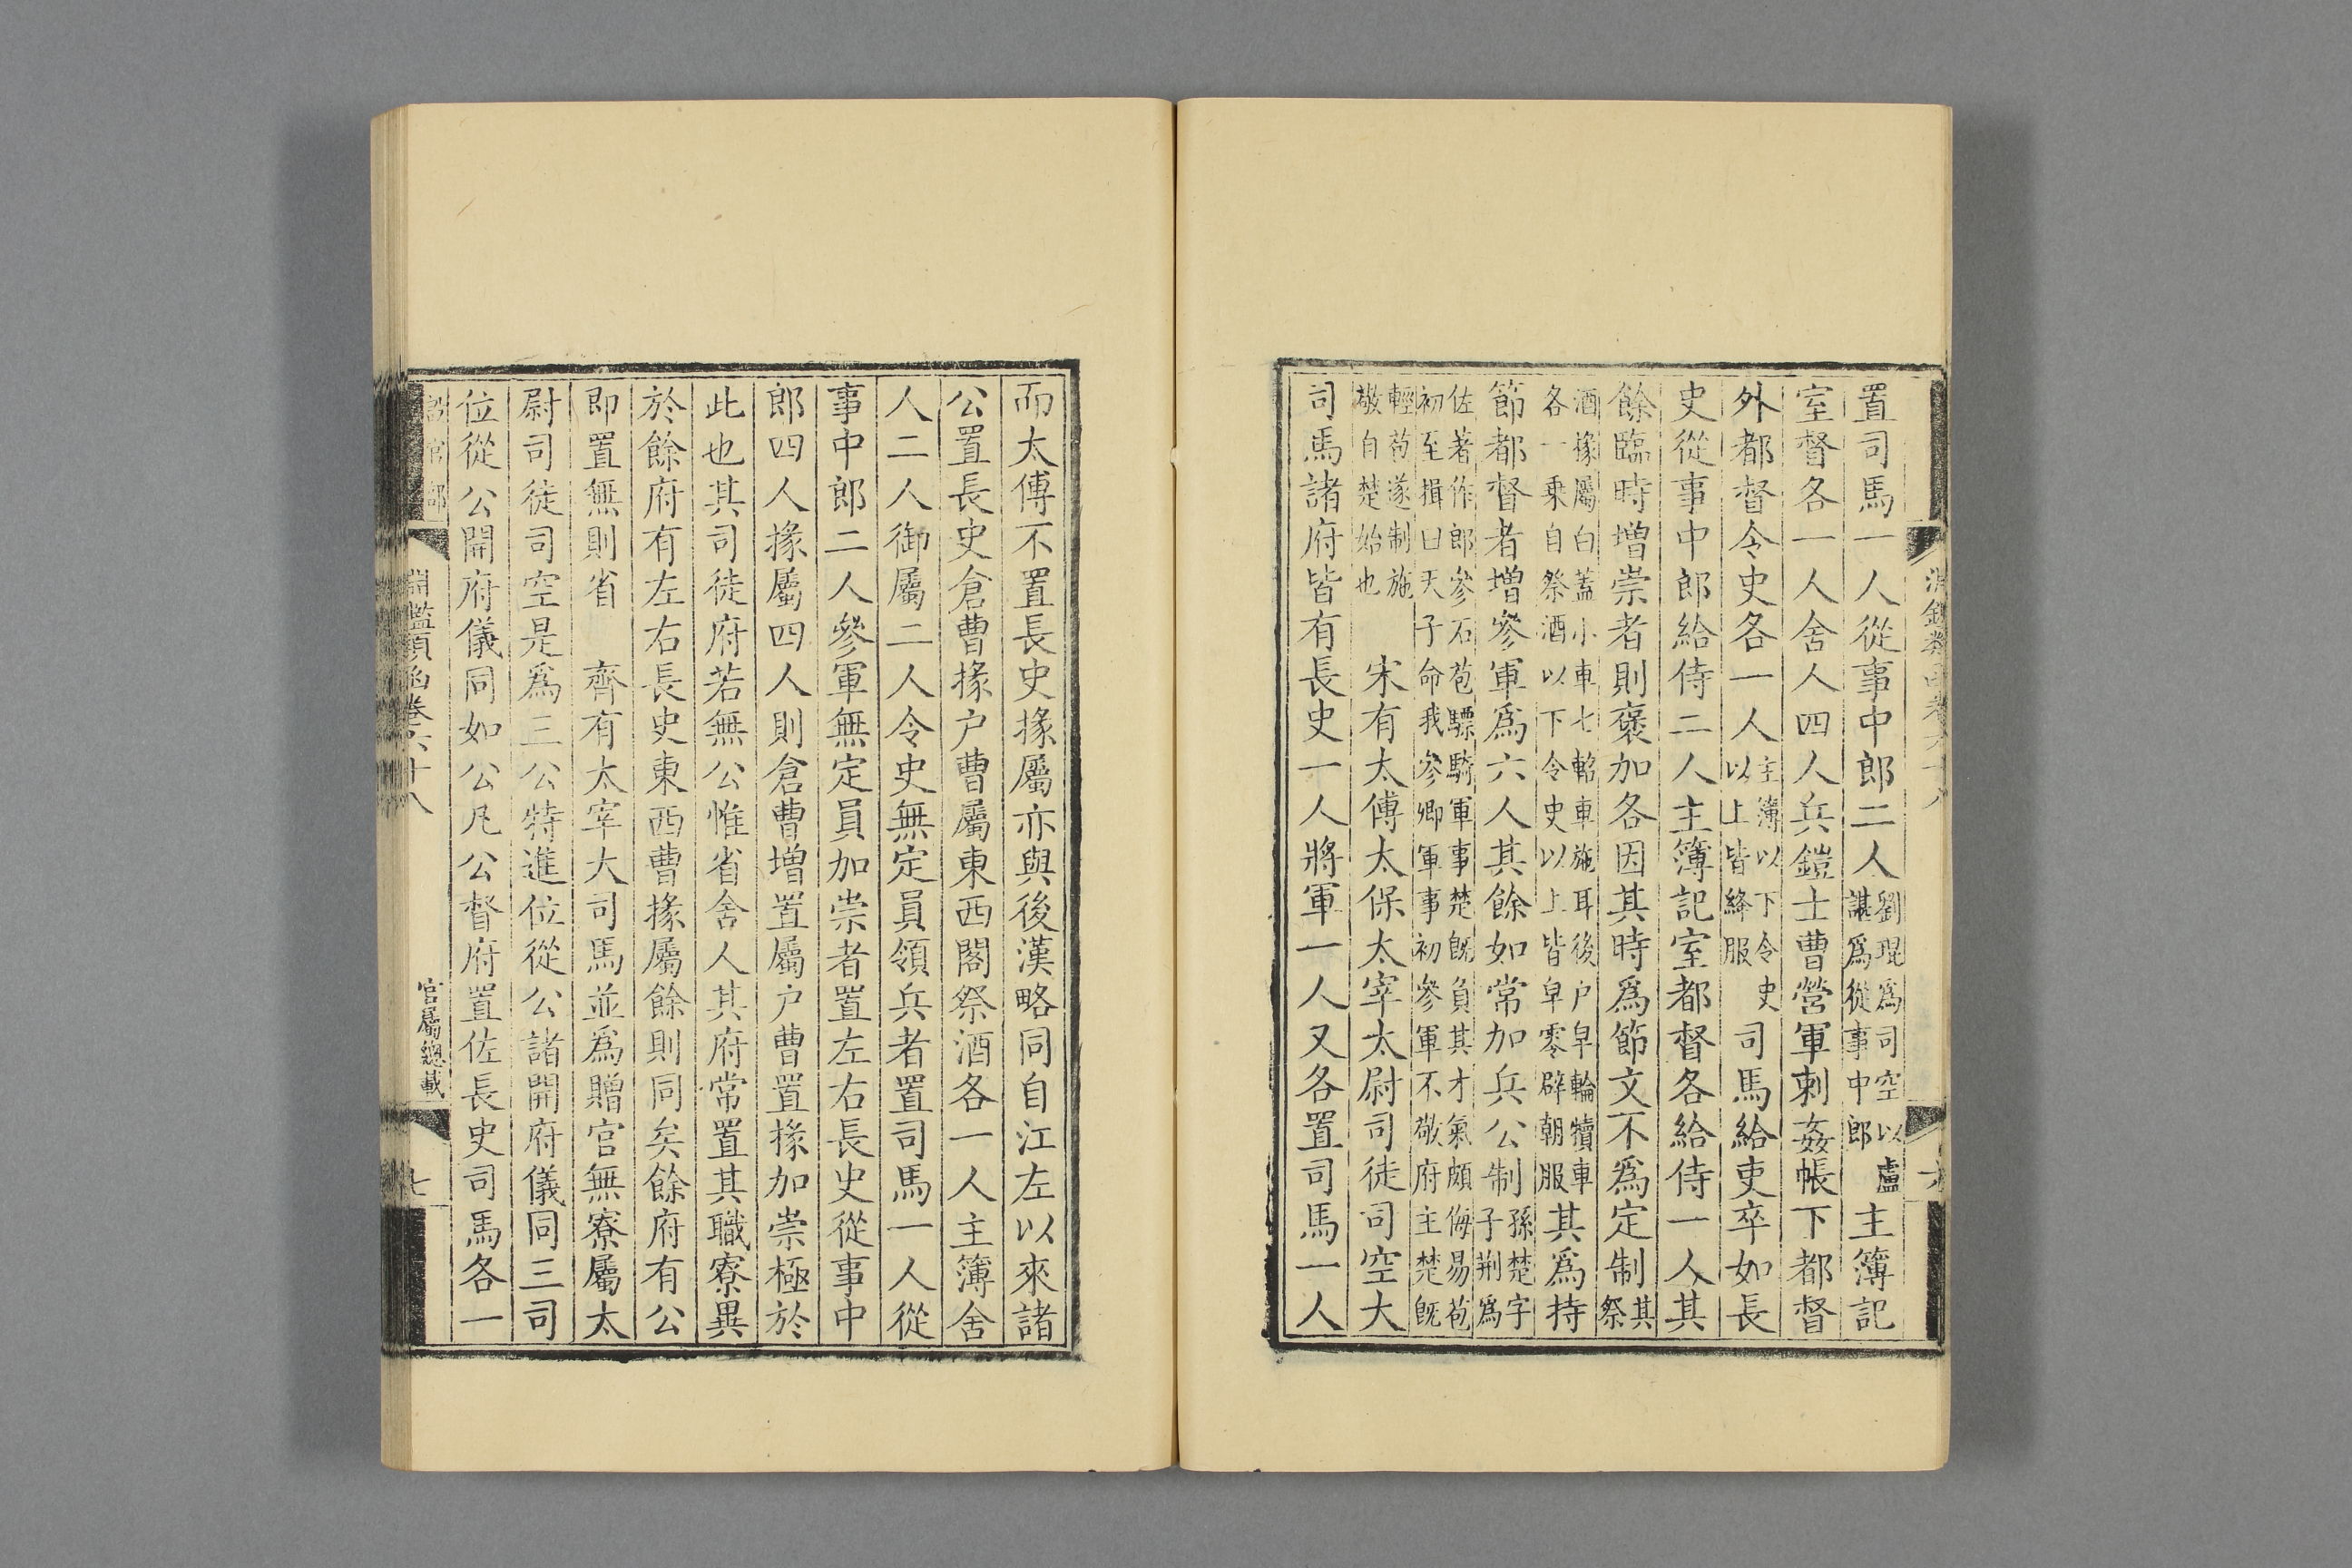 置司馬一人從事中郎二人劉琨爲司空以盧諶爲從事中郎主簿記
室督各一人舍人四人兵鎧士曹營軍刺姦帳下都督
外都督令史各一人主簿以下令史以上皆絳服司馬給吏卒如長
史從事中郎給侍二人主簿記室都督各給侍一人其
餘臨時增崇者則褒加各因其時爲節文不爲定制其祭
酒掾屬白蓋小車七軺車施耳後户皁輪犢車各一乘自祭酒以下令史以上皆皁零辟朝服其爲持
節都督者增參軍爲六人其餘如常加兵公制孫楚字子荆爲
佐著作郎參石苞驃騎軍事楚旣負其才氣頗侮易苞初至揖曰天子命我參卿軍事初參軍不敬府主楚旣
輕苞遂制施敬自楚始也宋有太傅太保太宰太尉司徒司空大
司馬諸府皆有長史一人將軍一人又各置司馬一人
而太傅不置長史掾屬亦與後漢略同自江左以來諸
公置長史倉曹掾户曹屬東西閣祭酒各一人主簿舍
人二人御屬二人令史無定員領兵者置司馬一人從
事中郎二人參軍無定員加崇者置左右長史從事中
郎四人掾屬四人則倉曹增置屬户曹置掾加崇極於
此也其司徒府若無公惟省舍人其府常置其職寮異
於餘府有左右長史東西曹掾屬餘則同矣餘府有公
即置無則省　齊有太宰大司馬並爲贈官無寮屬太
尉司徒司空是爲三公特進位從公諸開府儀同三司
位從公開府儀同如公凡公督府置佐長史司馬各一
淵鑑類函卷六十八　官屬總載　七